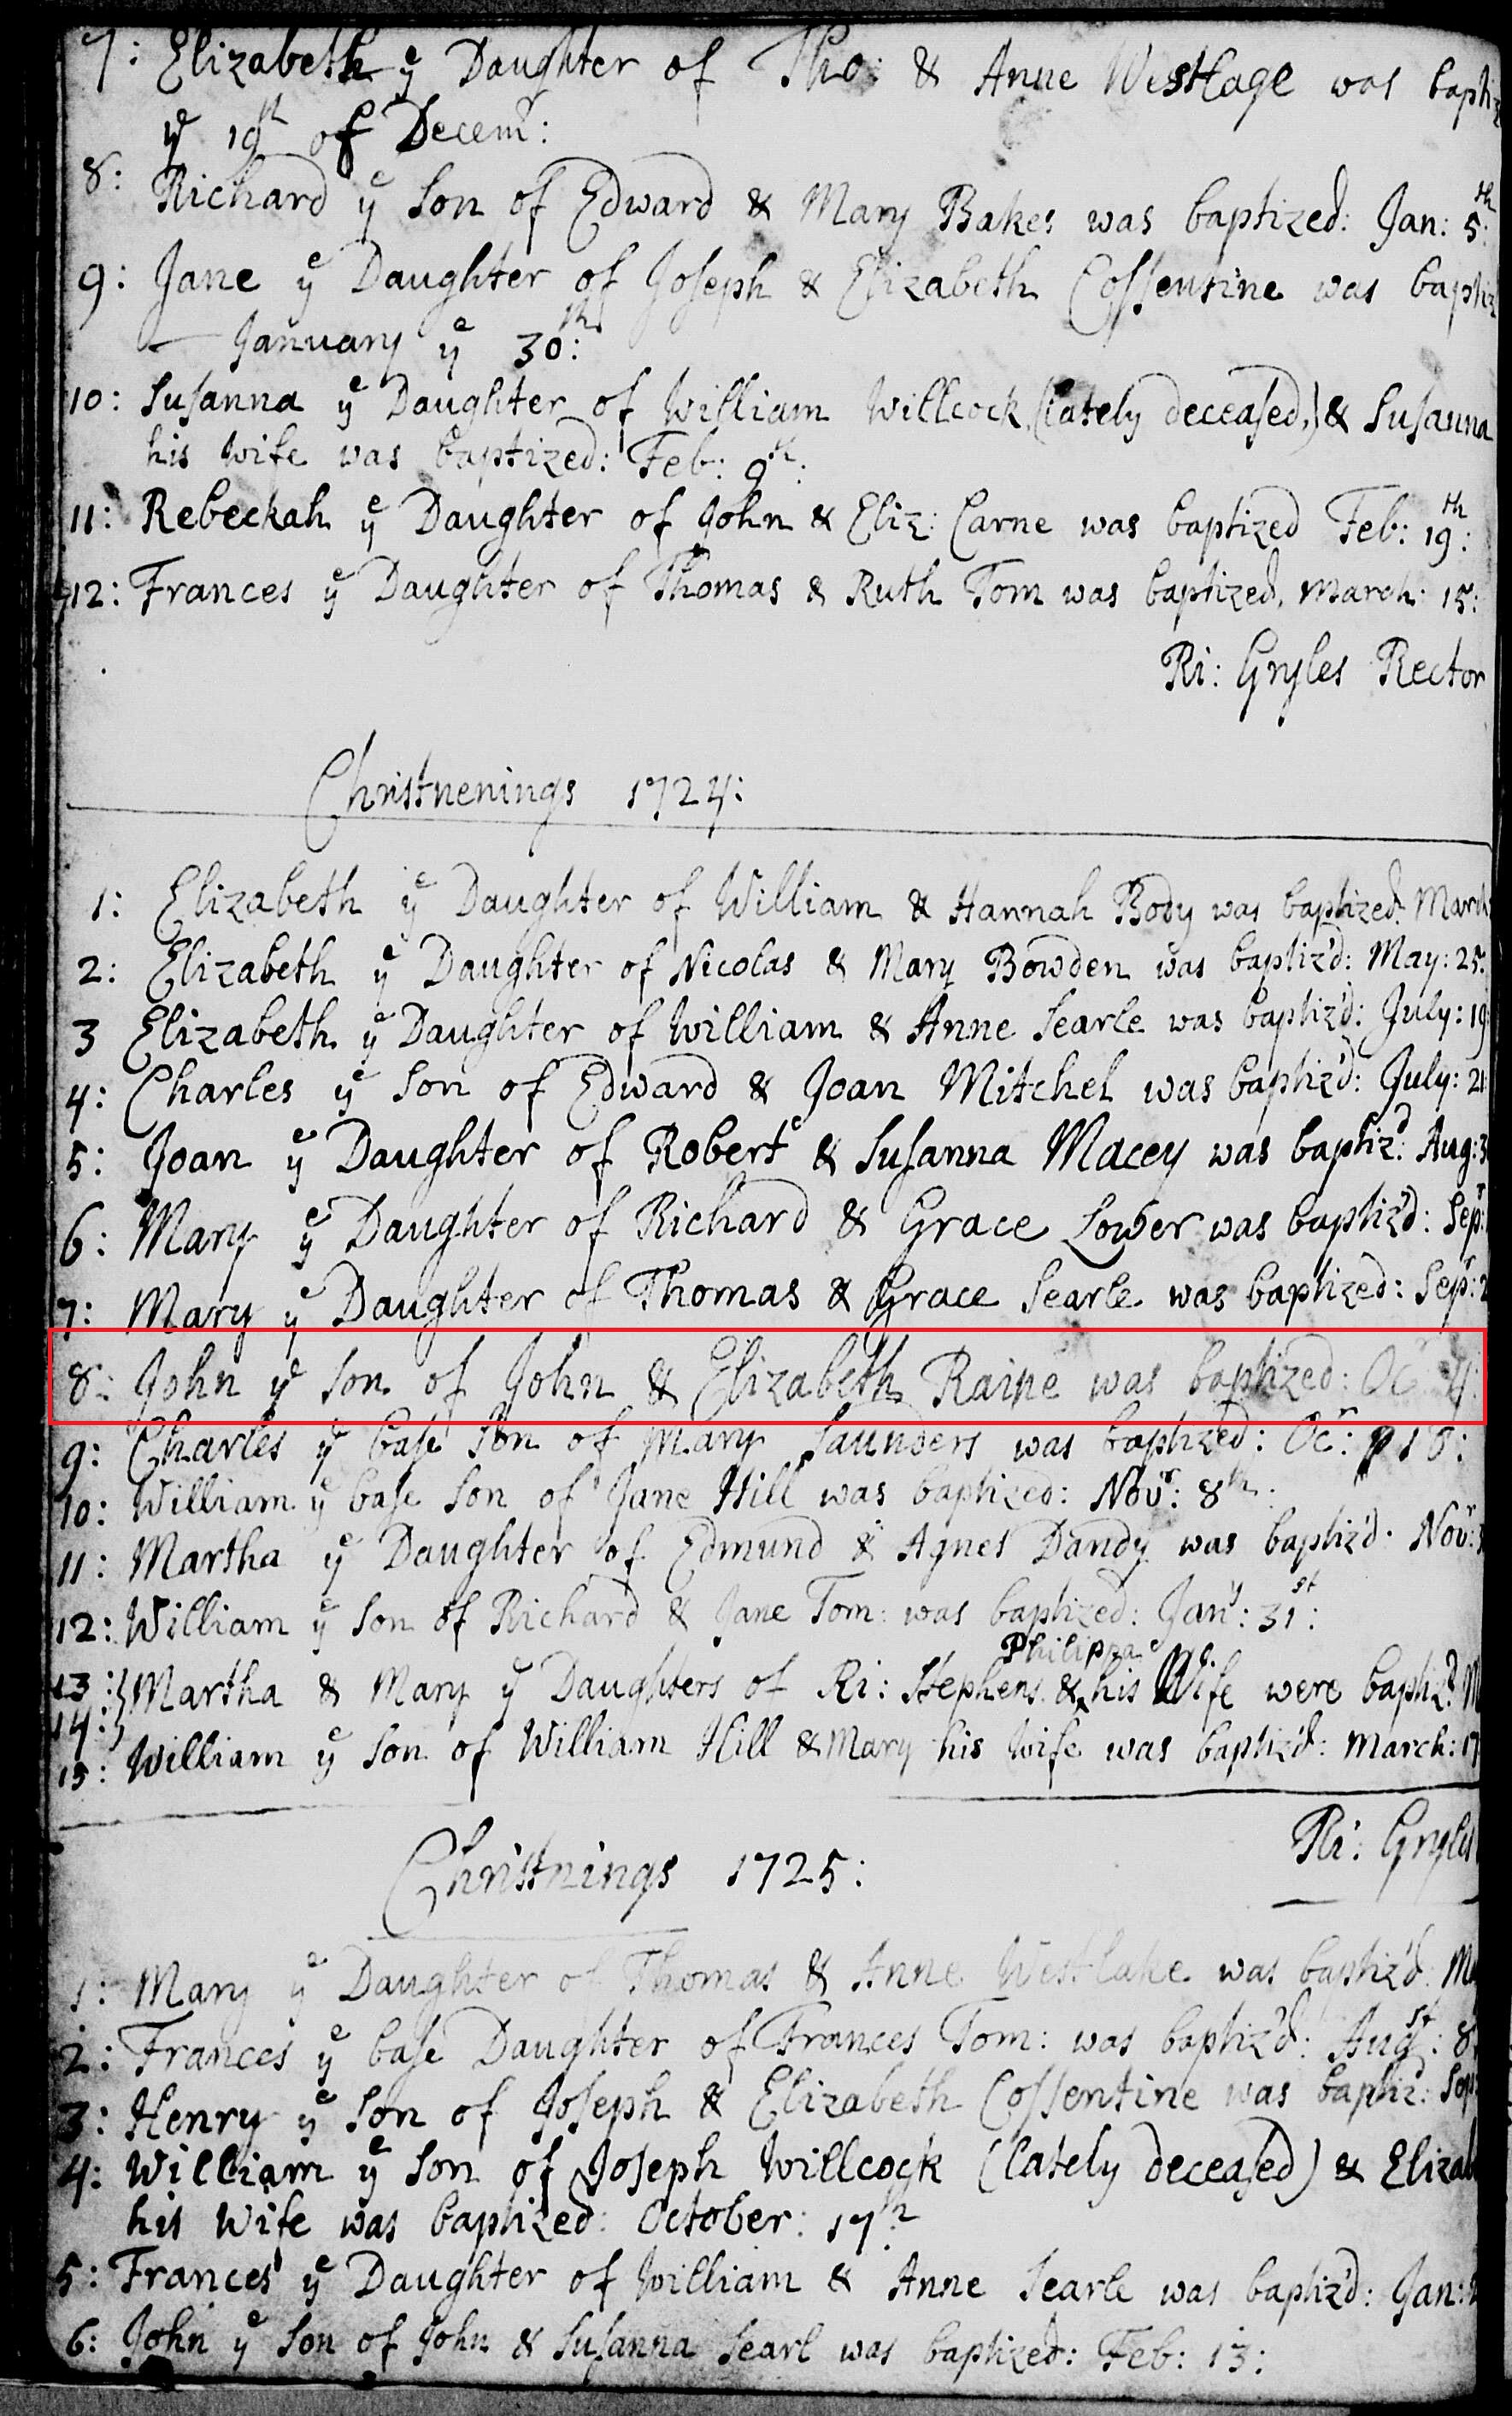 7: Elizabeth yᵉ Daughter of Tho: & Anne Westlage was baptiz
yᵉ 19th of Decemʳ:
8: Richard yᵉ Son of Edward & Mary Baker was baptized: Jan: 5:th
9: Jane yᵉ Daughter of Joseph & Elizabeth Cossentine was baptiz
January yᵉ 30:th
10: Susanna yᵉ Daughter of William Willcock (lately deceased,) & Susanna
his Wife was baptized: Feb: 9th:
11: Rebeckah yᵉ Daughter of John & Eliz: Carne was baptized Feb: 19:th
12: Frances yᵉ Daughter of Thomas & Ruth Tom was baptized, March: 15:
Ri: Gryles Rector
Christnenings 1724:
1: Elizabeth yᵉ Daughter of William & Hannah Body was baptized: March
2: Elizabeth yᵉ Daughter of Nicolas & Mary Bowden was baptiz'd: May: 25:
3 Elizabeth yᵉ Daughter of William & Anne Searle was baptiz'd: July: 19
4: Charles yᵉ Son of Edward & Joan Mitchel was baptiz'd: July: 21
5: Joan yᵉ Daughter of Robert & Susanna Macey was baptiz'd: Aug: 3
6: Mary yᵉ Daughter of Richard & Grace Lower was baptiz'd: Sepʳ:
7: Mary yᵉ Daughter of Thomas & Grace Searle was baptized: Sepʳ: 2
8: John yᵉ Son of John & Elizabeth Raine was baptized: Ocʳ 4:
9: Charles yᵉ base Son of Mary Saunders was baptized: Ocʳ: 18:
10: William yᵉ base Son of Jane Hill was baptized: Novʳ: 8th:
11: Martha yᵉ Daughter of Edmund & Agnes Dandy was baptiz'd: Novʳ:
12: William yᵉ Son of Richard & Jane Tom: was baptized: Janʸ: 31:st
Philippa
13:} Martha & Mary yᵉ Daughters of Ri: Stephens & ^ his Wife were baptiz'd M
14:}
15: William yᵉ Son of William Hill & Mary his Wife was baptiz'd: March: 17
Ri: Gryles
Christnings 1725:
1: Mary yᵉ Daughter of Thomas & Anne Westlake was baptiz'd: M
2: Frances yᵉ base Daughter of Frances Tom: was baptiz'd: Augst: 8
3: Henry yᵉ Son of Joseph & Elizabeth Cossentine was baptiz: Sep
4: William yᵉ Son of Joseph Willcock (lately deceased) & Elizab
his Wife was baptized: October: 17th
5: Frances yᵉ Daughter of William & Anne Searle was baptiz'd: Jan: 2
6: John yᵉ Son of John & Susanna Searl was baptized: Feb: 13: